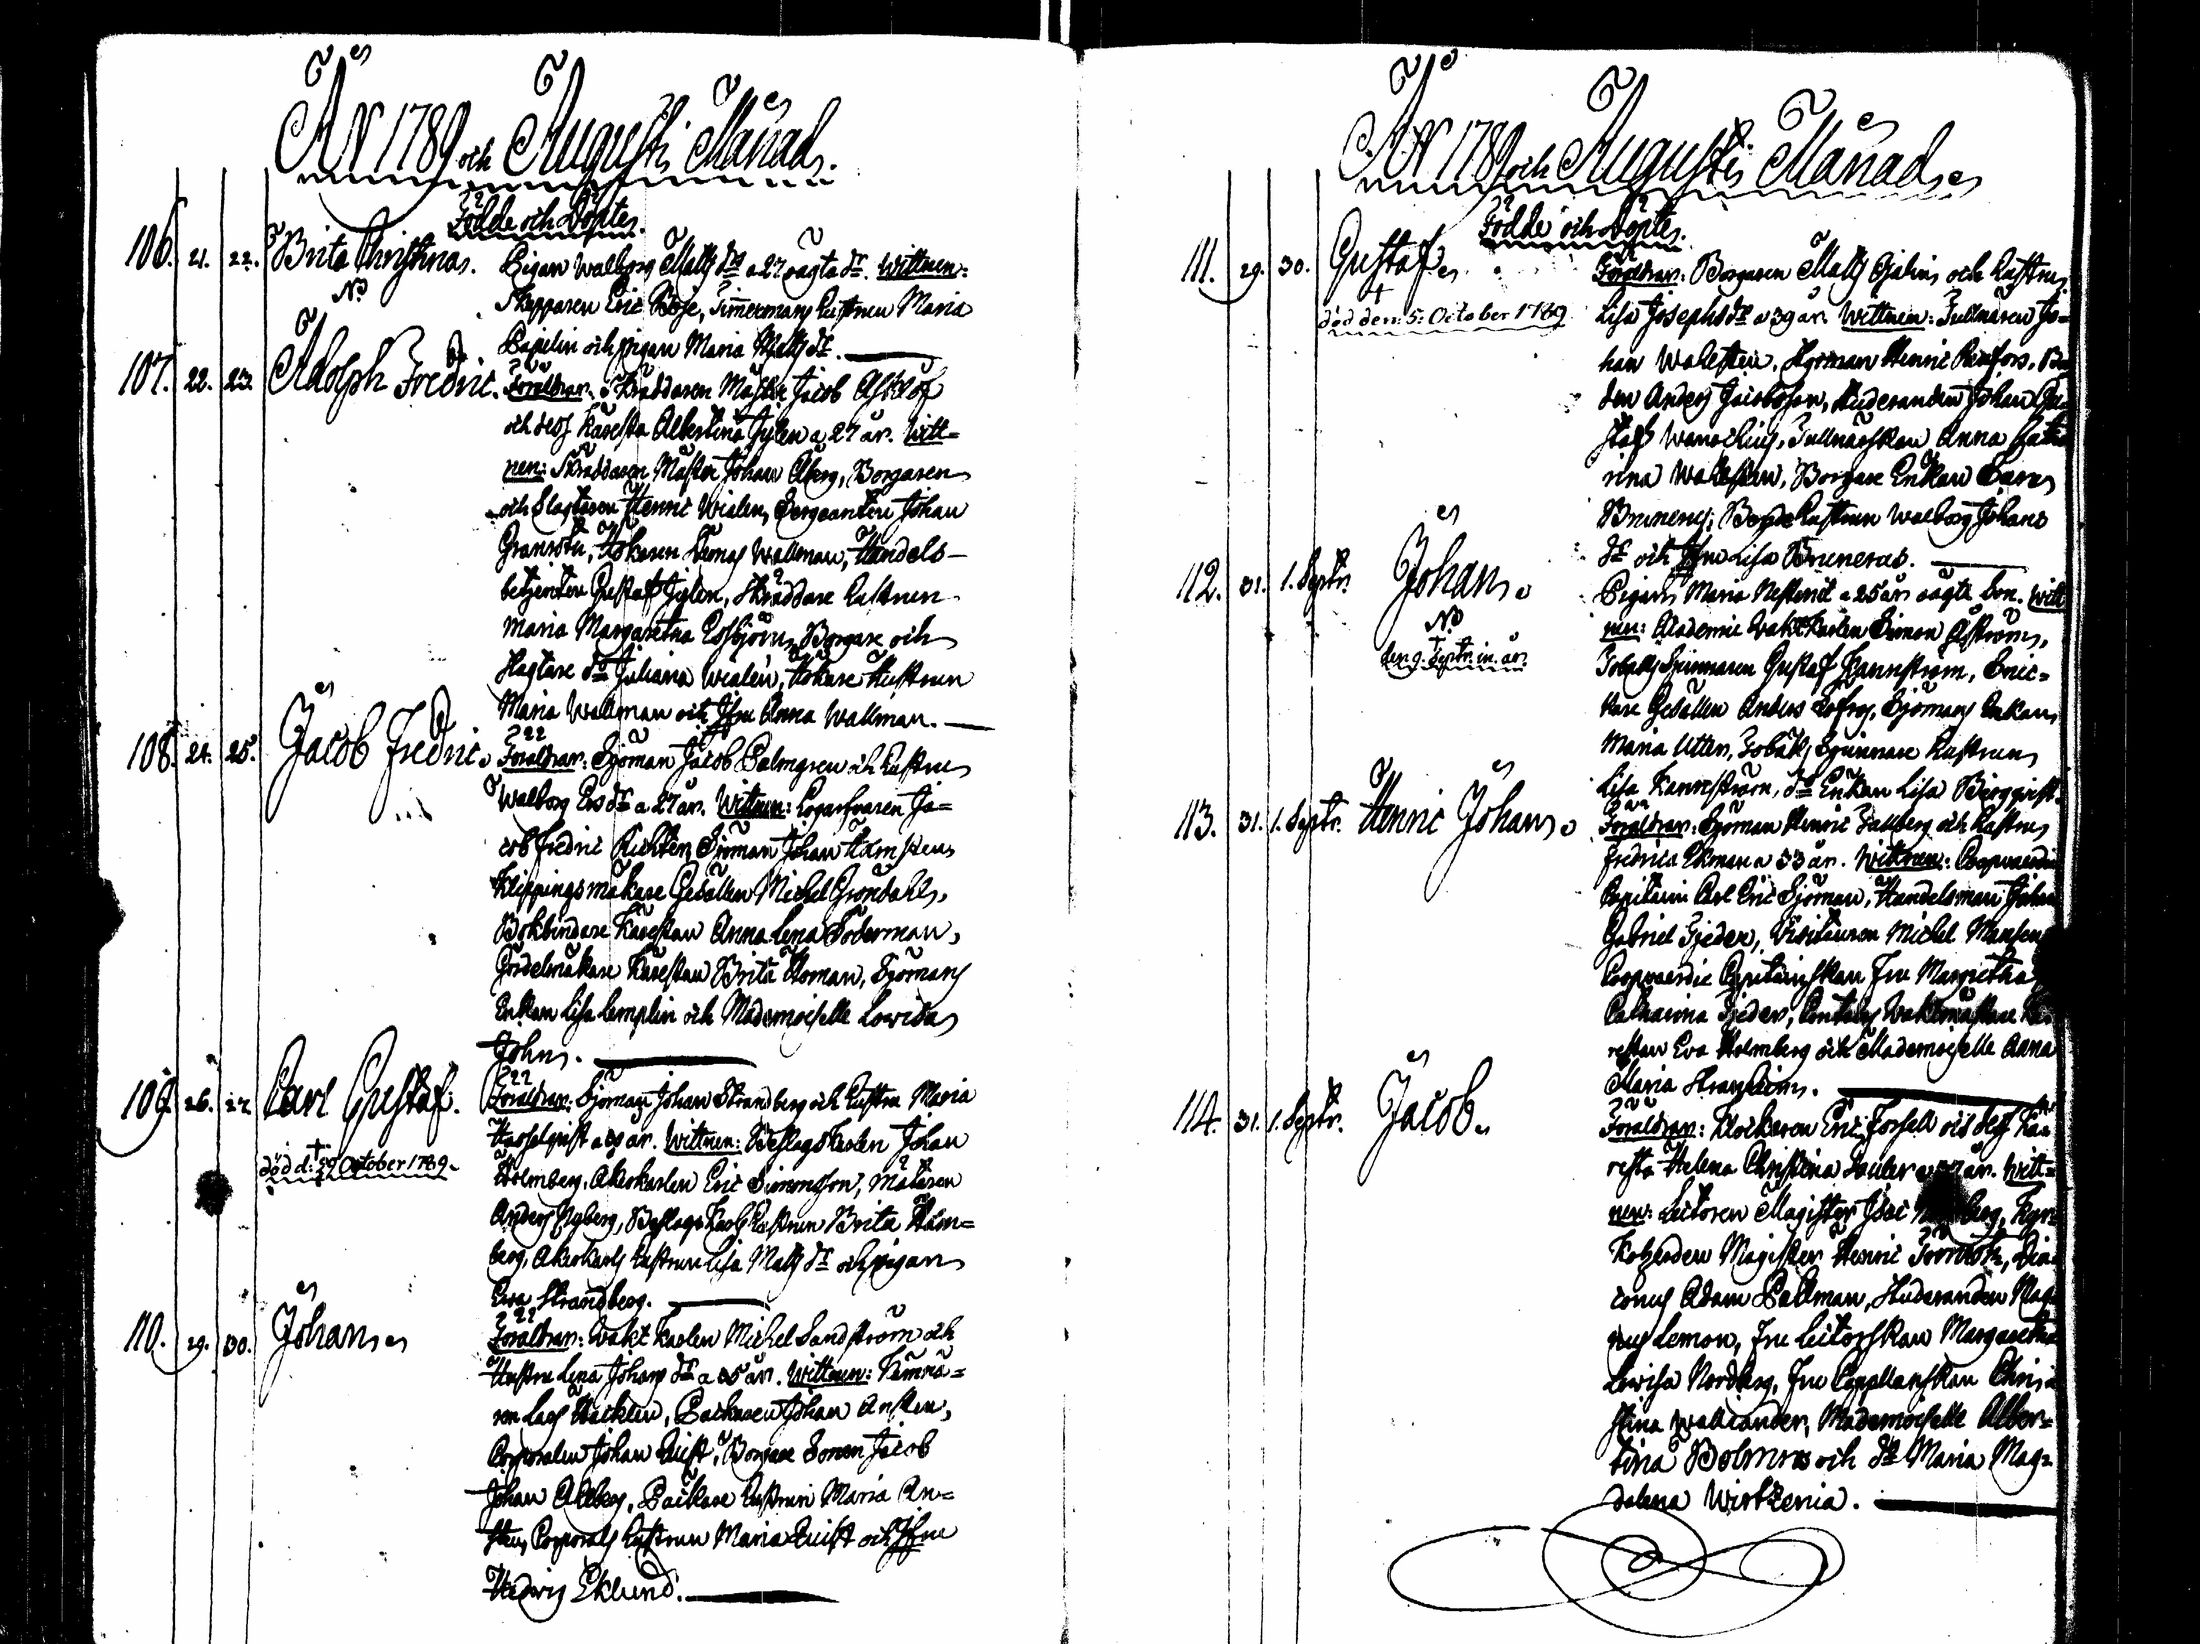 År 1789 och Augusti Månad.
Födde och Döpte.
106. 21. 22. Brita Christina. Pigan Walborg Matts drs a 27 oägta dr. Wittnen:
No Skepparen Eric Böje, Timmermans Hustrun Maria
Papelin och pigan Maria Matts dr.
107. 22. 23. Adolph Fredric. Föräldrar: Skräddaren Mäster Jacob Ahlöf
och dess Käresta Albertina Gylen a 27 år. Witt=
nen: Skräddaren Mäster Johan Åberg, Borgaren
och Slagtaren Henric Wialen, Sergeanten Johan
Granroth, Hökaren Tomas Wallman, Handels-
betjenten Gustaf Gylen, Skräddare Hustrun
Maria Margaretha Esbjörn, Borgare och
Slagtare do Juliana Wialen, Hökare Hustrun
Maria Wallman och Jfru Anna Wallman.
108. 24. 25. Jacob Fredric. Föräldrar: Sjöman Jacob Palmgren och Hustru
Walborg Ers dr a 27 år. Wittnen: Logarfvaren Ja=
cob Fredric Richter, Sjöman Johan Hamsten
Klippingsmakare Gesällen Michel Gröndahl,
Bokbindare Kärestan Anna Lena Söderman,
Gördelmakare Kärestan Brita Homan, Sjömans
Enkan Lisa Lemplin och Mademoiselle Lowisa
John.
109. 26. 27. Carl Gustaf. Föräldrar: Sjöman Johan Strandberg och Hustru Maria
Hasselqvist a år. Wittnen: Beslagskarlen Johan
död d: 29 October 1789. Holmberg, Åkerkarlen Eric Simonsson, Målaren
Anders Nyberg, Beslags Karls Hustrun Brita Holm=
berg, Åkerkarls Hustrun Lisa Matts dr och pigan
Ewa Strandberg.
110. 29. 30. Johan. Föräldrar: Wakt Karlen Michel Sandström och
Hustru Lena Johans dr a 25 år. Wittnen: Kämnä=
ren Lars Hacklin, Packaren Johan Ansten,
Corporalen Johan Qvist, Borgare Sonen Jacob
Johan Ahlberg, Packare Hustrun Maria An=
sten, Corporals Hustrun Maria Qvist och Jfru
Hedwig Eklund.
År 1789 och Augusti Månad.
Födde och Döpte.
111. 29. 30. Gustaf. Föräldrar: Borgaren Matts Gjalin och Hustru
död den: 5: October 1789 Lisa Josephs dr a 39 år. Wittnen: Tullnären Jo=
han Walsten, Styrman Henric Renfors,
den Anders Jacobsson, Studeranden Johan Gu=
staf Wanochius, Tullnärskan Anna Catha
rina Walsten, Borgare Enkan Sara
Bruneru, Hustrun Walborg Johans
dr och Jfru Lisa Bruneras.
112. 31. 1. Septr. Johan. Pigan Maria Neslenit a 25 år oägta Son. Witt
No nen: Academie Waktkarlen Simon Åström,
den 9. Septr. in. år. Tobaks Spinnaren Gustaf Hannström, Snic=
kare Gesällen Anders Löfroj, Sjömans Enkan
Maria Utter, Tobaks Spinnare Hustrun
Lisa Hannström, do Enkan Lisa Bergqvist.
113. 31. 1. Septr. Henric Johan. Föräldrar: Sjöman Henric Tallberg och Hustru
Fredrica Ekman a 33 år. Wittnen: Coopvaerdie
Capitain Carl Eric Sjöman, Handelsman Johan
Gabriel Tjeder, Visiteuren Michel Mansen
Coopvaerdie Capitainskan Fru Margretha
Catharina Tjeder, Contoirs Waktmästare Kä=
restan Eva Holmberg och Mademoiselle Anna
Maria Stranheim.
114. 31. 1. Septr. Jacob. Föräldrar: Klockaren Eric Forsell och dess Kä=
resta Helena Christina Sauler a 37 år. Witt=
nen: Lectoren Magister Isac Nordberg, Kyr=
koherden Magister Henric Törnroth, Dia=
conus Adam Pallman, Studeranden Mag=
nus Lemon, Fru Lectorskan Margaretha
Lowisa Nordberg, Fru Capellanskan Chri=
stina Wallcander, Mademoiselle Alber=
tina Bolmra och do Maria Mag=
dalena Wirtzenia.